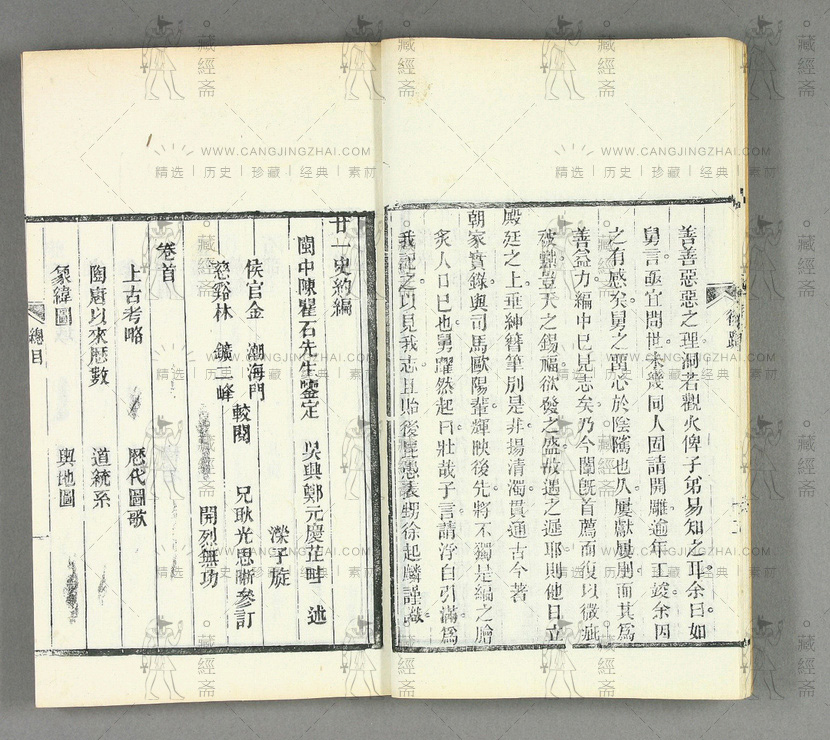 善善惡惡之理洞若觀火俾子弟易知之耳余曰如
舅言亟宜問世未幾同人固請開雕逾年工竣余因
之有感矣舅之留心於陰隲也久屢獻屢刖而其為
善益力編中已見志矣乃今闈旣首薦而復以微疵
被黜豈天之錫福欲發之盛故遇之遲耶則他日立
殿廷之上垂紳簪筆別是非揚清濁貫通古今著
朝家實錄與司馬歐陽輩輝映後先將不獨是編之膾
炙人口已也舅躍然起曰壯哉子言請浮白引滿為
我記之以見我志且貽後焉愚表甥徐起麟謹識
後跋
廿一史約編
閩中陳瞿石先生鑒定 吳興鄭元慶芷畦 述
侯官金 潮海門
慈谿林 鑛三峰
較閱
兄耿光思晰參訂
濚子旋
開烈無功
卷首
上古考略 歷代圖歌
陶唐以來歷數 道統系
象緯圖 輿地圖
總目
一
藏經斋
WWW.CANGJINGZHAI.COM
精选 | 历史 | 珍藏 | 经典 | 素材